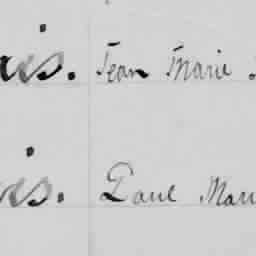 is. Jean Marie
is. Paul